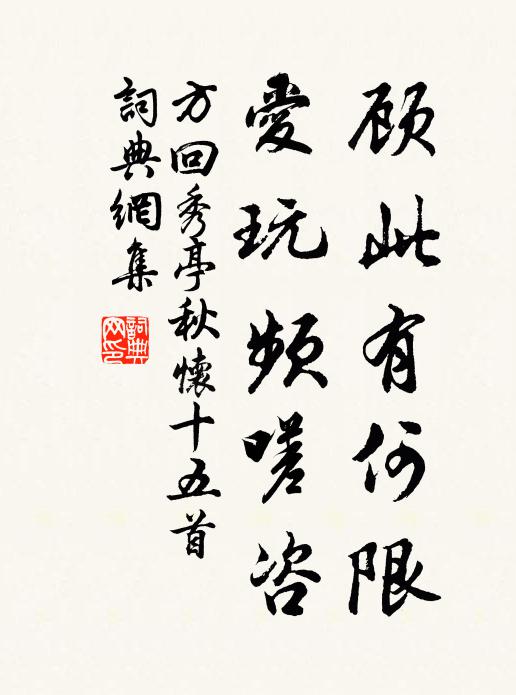 顾此有何限
愛玩频嗟咨
方回秀亭秋懷十五首
詞典網集
詞典网印